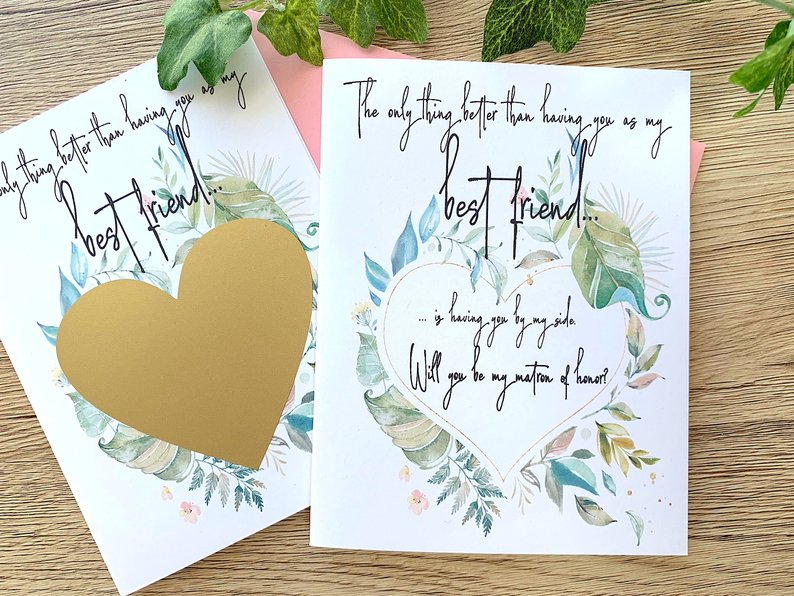 only thing better than having you as my
best friend...
The only thing better than having you as my
best friend...
... is having you by my side.
Will you be my matron of honor?